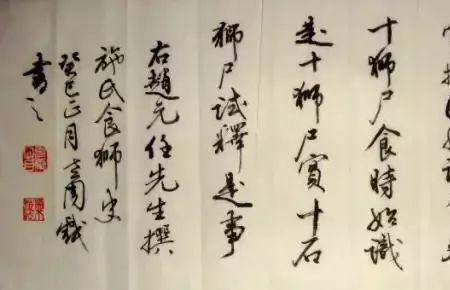 十獅尸食時始識
是十獅尸實十石
獅尸試釋是事
右趙元任先生撰
施氏食獅史
癸巳正月
書之